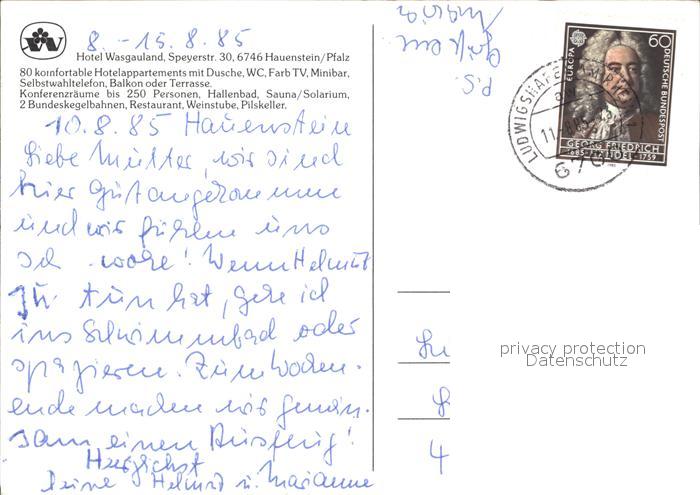 8. - 15. 8. 85
Hotel Wasgauland, Speyerstr. 30, 6746 Hauenstein/Pfalz
80 komfortable Hotelappartements mit Dusche, WC, Farb TV, Minibar,
Selbstwahltelefon, Balkon oder Terrasse.
Konferenzräume bis 250 Personen, Hallenbad, Sauna/Solarium,
2 Bundeskegelbahnen, Restaurant, Weinstube, Pilskeller.
10.8.85 Hauenstein
Liebe Mutter, wir sind
hier gut angekommen
und wir fühlen uns
wohl! Wenn Helmut
zu tun hat, gehe ich
ins Schwimmbad oder
spazieren. Zum Wochen-
ende machen wir gemein-
sam einen Ausflug!
Herzlichst
Deine Helmut u. Marianne
P.S.
60
EUROPA
DEUTSCHE BUNDESPOST
GEORG FRIEDRICH
1685 HÄNDEL 1759
LUDWIGSHAFEN
670
privacy protection
Datenschutz
4